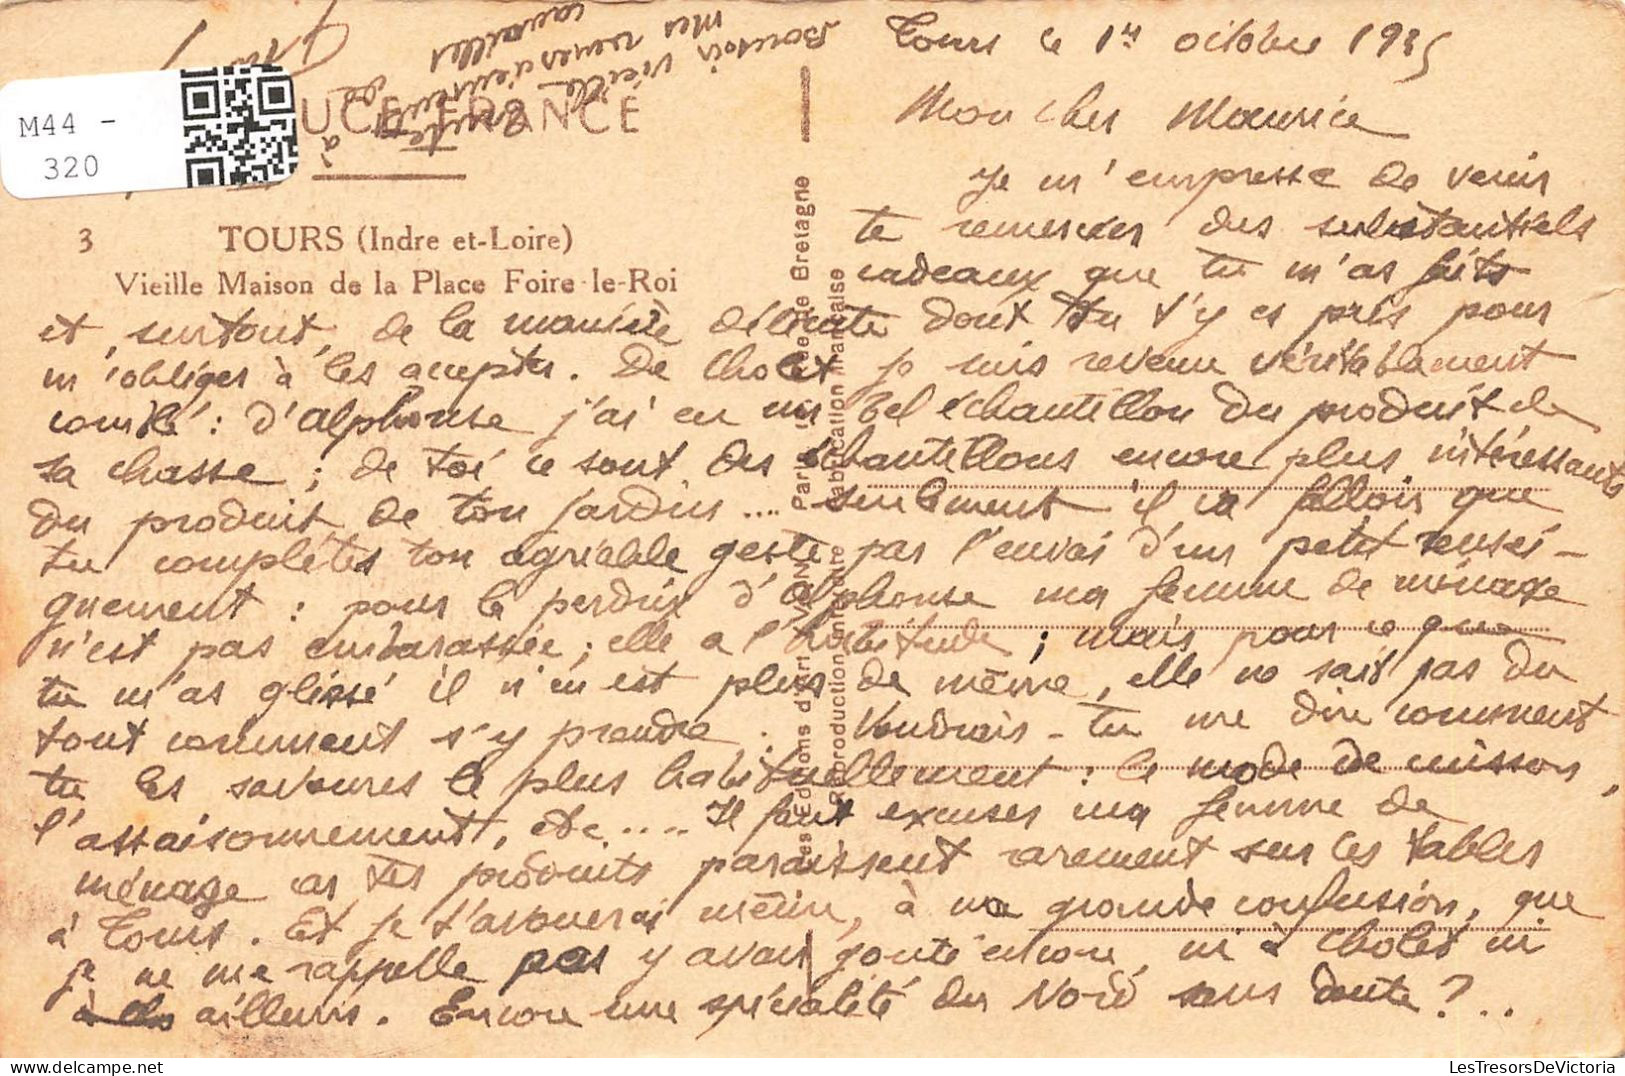 M44 -
320
UCE FRANCE
3 TOURS (Indre et-Loire)
Vieille Maison de la Place Foire-le-Roi
Tours le 1er octobre 1935
Mon cher Maurice
Je m'empresse de venir
te remercier des substantiels
cadeaux que tu m'as faits
et, surtout, de la manière délicate dont tu t'y es pris pour
m'obliger à les accepter. De Cholet je suis revenu véritablement
comblé : d'Alphonse j'ai eu un bel échantillon du produit de
sa chasse ; de toi ce sont des échantillons encore plus intéressants
du produit de ton jardin .... seulement il va falloir que
tu complètes ton agréable geste par l'envoi d'un petit rensei-
gnement : pour la perdrix d'Alphonse ma femme de ménage
n'est pas embarassée ; elle a l'habitude ; mais pour ce que
tu m'as glissé il n'en est plus de même, elle ne sait pas du
tout comment s'y prendre. Voudrais-tu me dire comment
tu les savoures le plus habituellement : le mode de cuisson,
l'assaisonnement, etc.... Il faut excuser ma femme de
ménage car tes produits paraissent rarement sur les tables
à Tours. Et je t'avouerai même, à ma grande confusion, que
je ne me rappelle pas y avoir goûté encore, ni à Cholet ni
ailleurs. Encore une spécialité du Nord sans doute ?..
Bonsoir vieille
mes
à
Paris
de Bretagne
Fabrication Française
Reproduction interdite
Les Editions d'Art YVON
LesTresorsDeVictoria